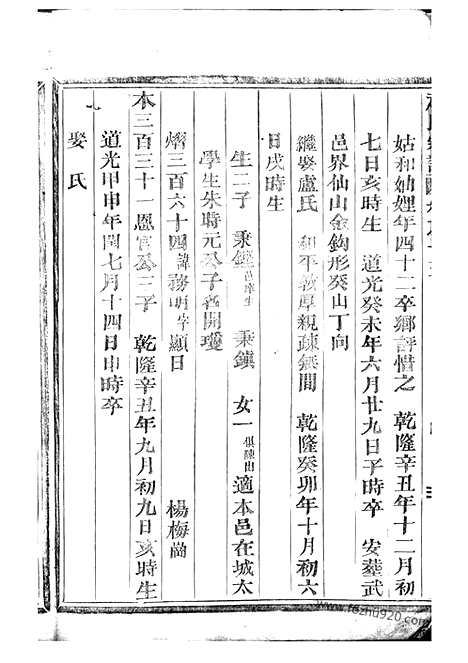 姑和妯娌年四十二卒鄉評惜之 乾隆辛丑年十二月初
七日亥時生 道光癸未年六月廿九日子時卒 安塟武
邑界仙山金鈎形癸山丁向
繼娶盧氏 和平敦厚親疎無間 乾隆癸卯年十月初六
日戌時生
生二子 秉鑑邑庠生 秉鎮 女一俱陳出適本邑在城太
學生朱時元公子名開瓊
熠三百六十四諱務明字顯日 楊梅崗
本三百三十一恩官公三子 乾隆辛丑年九月初九日亥時生
道光甲申年閏七月十四日申時卒
娶 氏
www.fozhu920.com